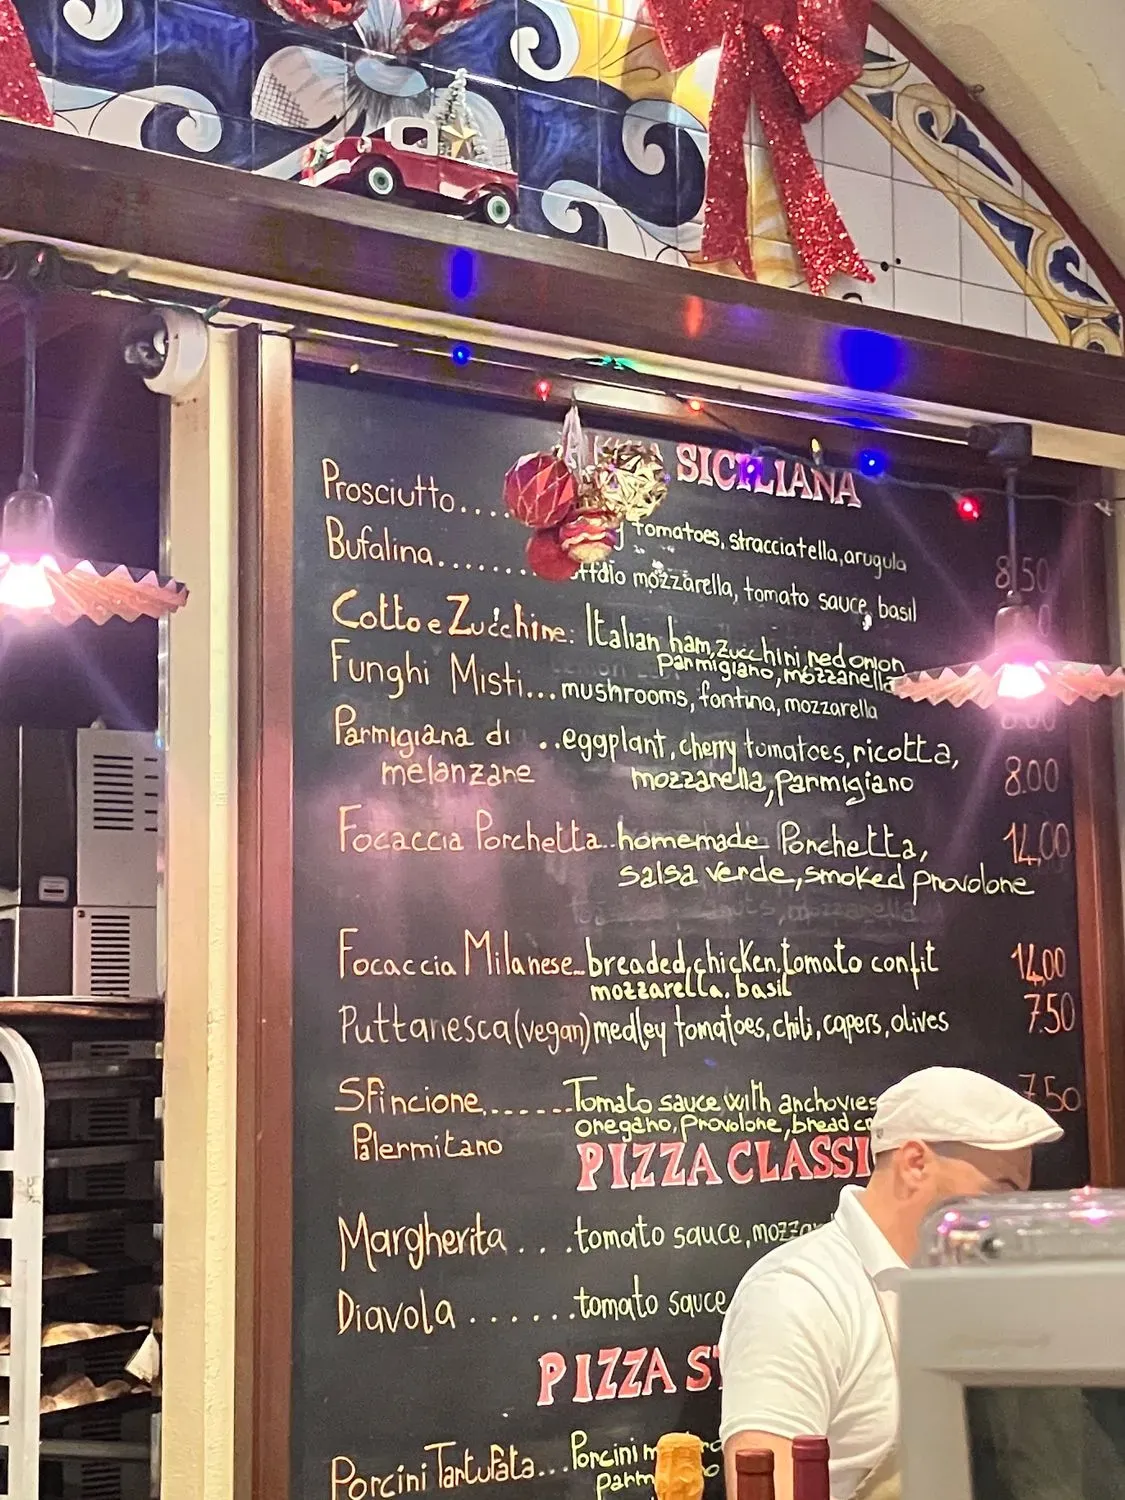 SICILIANA
Prosciutto.... tomatoes, stracciatella, arugula 8.50
Bufalina........ mozzarella, tomato sauce, basil
Cotto e Zucchine: Italian ham, zucchini red onion
parmigiano, mozzarella
Funghi Misti... mushrooms, fontina, mozzarella
Parmigiana di ..eggplant, cherry tomatoes, ricotta,
melanzane mozzarella, parmigiano 8.00
Focaccia Porchetta..homemade Porchetta, 14,00
salsa verde, smoked provolone
Focaccia Milanese...breaded, chicken, tomato confit 14,00
mozzarella, basil
Puttanesca (vegan) medley tomatoes, chili, capers, olives 7.50
Sfincione.......Tomato sauce with anchovies 7.50
Palermitano oregano, provolone, bread
PIZZA CLASSI
Margherita ... tomato sauce,
Diavola ...... tomato sauce
PIZZA
Porcini Tartufata... Porcini